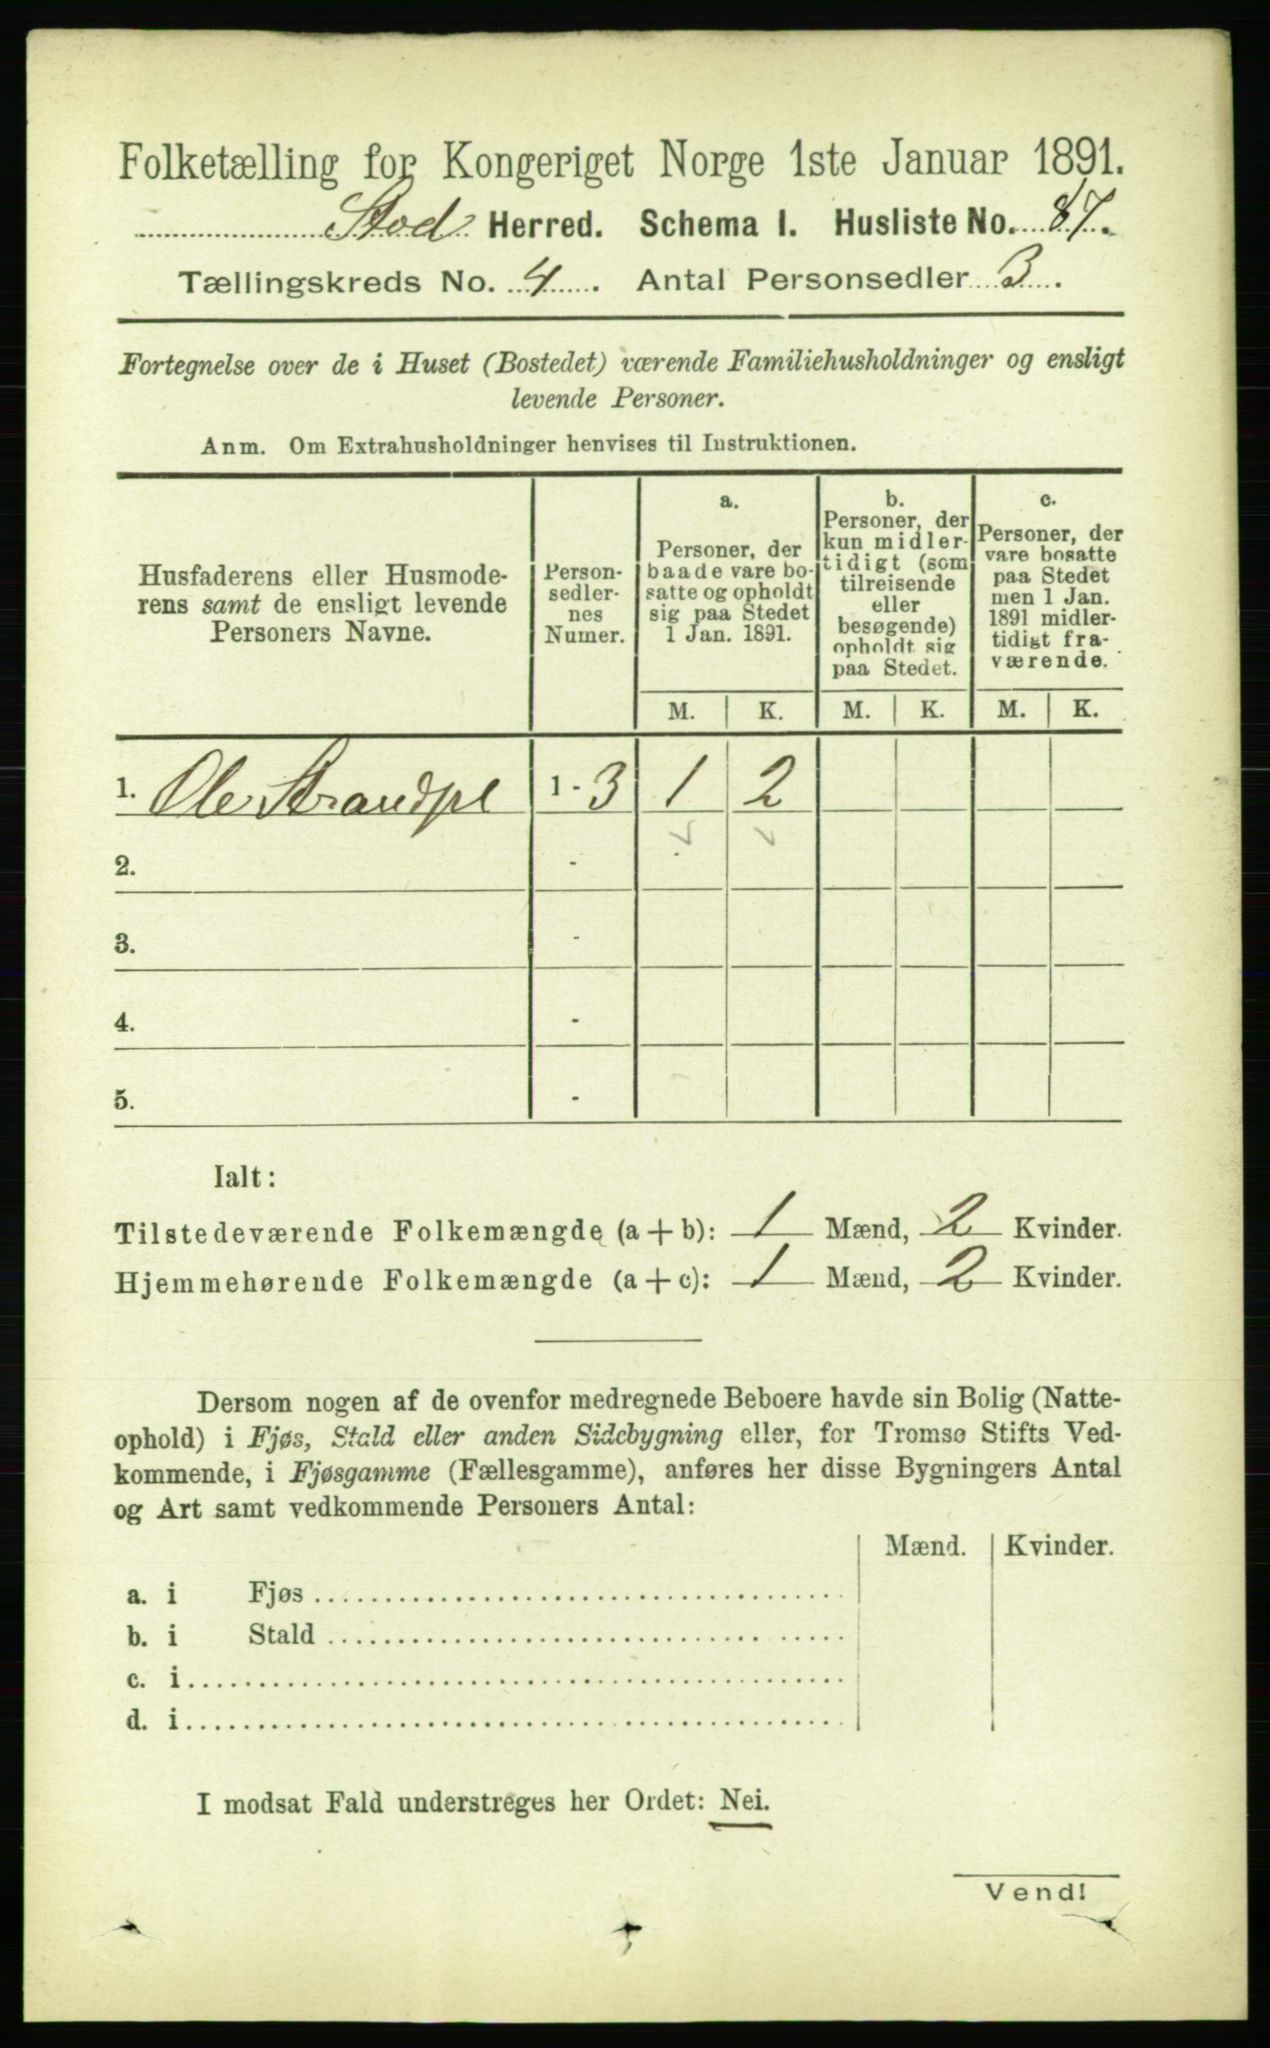 Folketælling for Kongeriget Norge 1ste Januar 1891.
Stod Herred. Schema I. Husliste No. 87.
Tællingskreds No. 4. Antal Personsedler 3.
Fortegnelse over de i Huset (Bostedet) værende Familiehusholdninger og ensligt
levende Personer.
Anm. Om Extrahusholdninger henvises til Instruktionen.
Husfaderens eller Husmode-
rens samt de ensligt levende
Personers Navne.
Person-
sedler-
nes
Numer.
a.
Personer, der
baade vare bo-
satte og opholdt
sig paa Stedet
1 Jan. 1891.
b.
Personer, der
kun midler-
tidigt (som
tilreisende
eller
besøgende)
opholdt sig
paa Stedet.
c.
Personer, der
vare bosatte
paa Stedet
men 1 Jan.
1891 midler-
tidigt fra-
værende.
M. K. M. K. M. K.
1. Ole Strandpl 1 - 3 1 2
2. -
3. -
4. -
5. -
Ialt:
Tilstedeværende Folkemængde (a + b): 1 Mænd, 2 Kvinder.
Hjemmehørende Folkemængde (a + c): 1 Mænd, 2 Kvinder.
Dersom nogen af de ovenfor medregnede Beboere havde sin Bolig (Natte-
ophold) i Fjøs, Stald eller anden Sidebygning eller, for Tromsø Stifts Ved-
kommende, i Fjøsgamme (Fællesgamme), anføres her disse Bygningers Antal
og Art samt vedkommende Personers Antal:
Mænd. Kvinder.
a. i Fjøs
b. i Stald
c. i
d. i
I modsat Fald understreges her Ordet: Nei.
Vend!